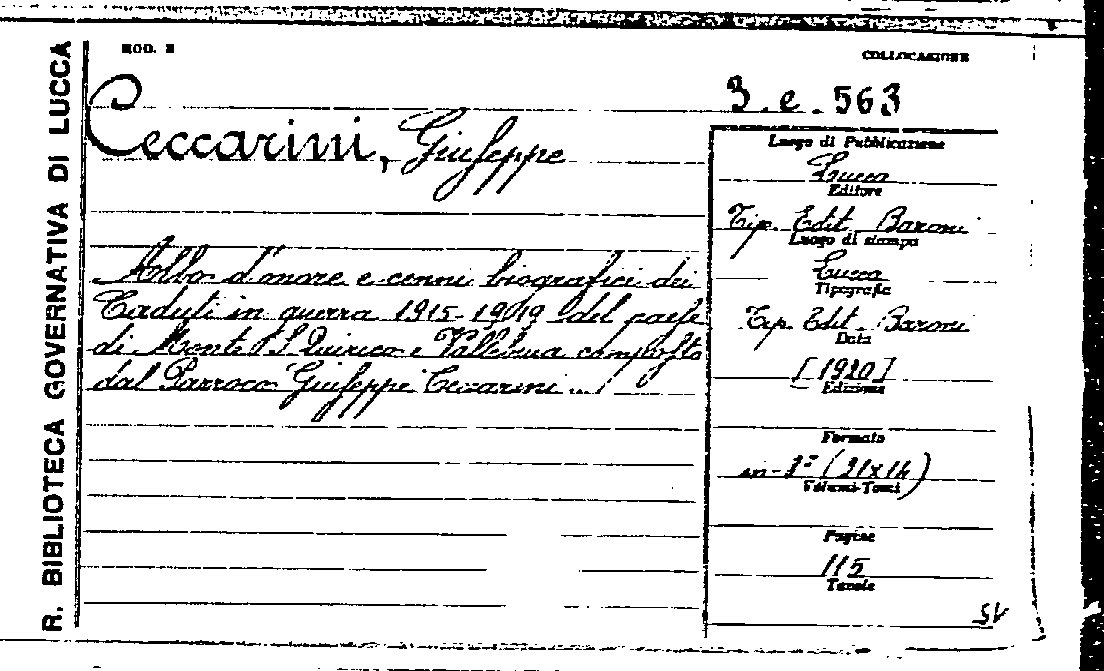 R. BIBLIOTECA GOVERNATIVA DI LUCCA
MOD. E
COLLOCAZIONE
3.e.563
Ceccarini, Giuseppe
Albo d'onore e cenni biografici dei
Caduti in guerra 1915-1919 del paese
di Monte S. Quirico e Vallebuia composto
dal Parroco Giuseppe Ceccarini ...
Luogo di Pubblicazione
Lucca
Editore
Tip. Edit. Baroni
Luogo di stampa
Lucca
Tipografia
Tip. Edit. Baroni
Data
[1920]
Edizione
Formato
in-8° (21x14)
Volumi-Tomi
Pagine
115
Tavole